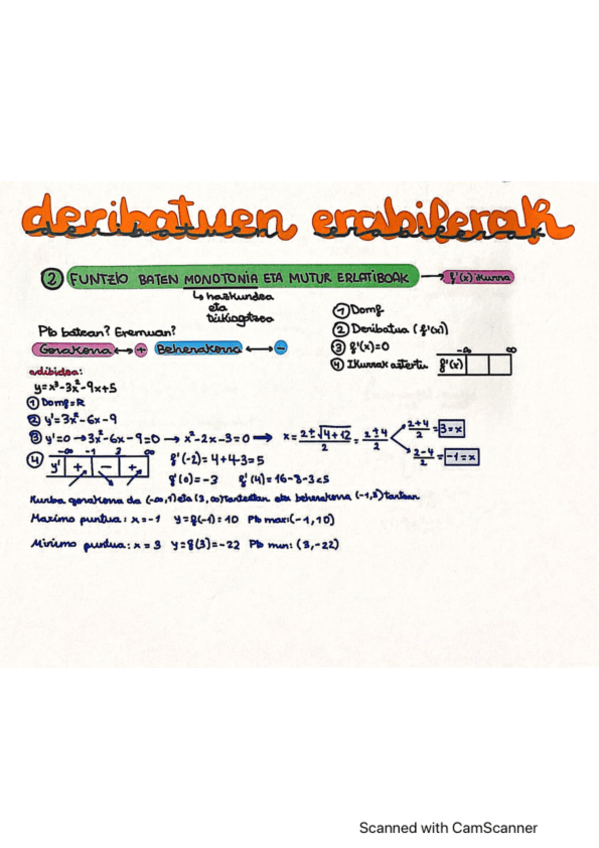 deribatuen erabilerak
② FUNTZIO BATEN MONOTONIA ETA MUTUR ERLATIBOAK → f'(x) ikurra
↳ hazkundea
eta
txikiagotzea
Pb batean? Eremuan?
Gorakorra ↔ + Beherakorra ↔ -
① Domf
② Deribatua (f'(x))
③ f'(x)=0
④ Ikurrak aztertu f'(x) -∞ ∞
adibidea:
y=x³-3x²-9x+5
① Domf=R
② y'=3x²-6x-9
③ y'=0 → 3x²-6x-9=0 → x²-2x-3=0 → x = 2±√4+12 / 2 = 2±4 / 2 2+4 / 2 = 3=x
2-4 / 2 = -1=x
④ -∞ -1 3 ∞
y' + - + f'(-2)=4+4-3=5
f'(0)=-3 f'(4)=16-8-3<5
Kurba gorakorra da (-∞,1) eta (3,∞) tartetan eta beherakorra (-1,3) tartean
Maximo puntua: x=-1 y=f(-1)=10 Pb max:(-1,10)
Minimo puntua: x=3 y=f(3)=-22 Pb min: (3,-22)
Scanned with CamScanner